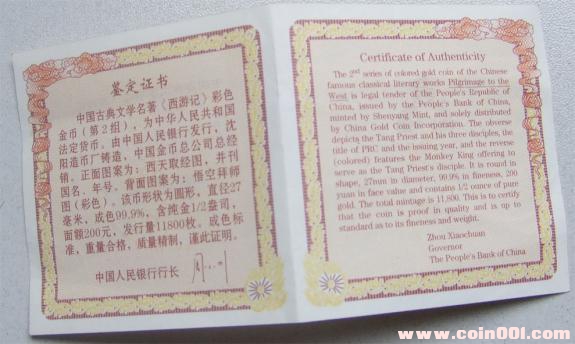 鉴定证书
中国古典文学名著《西游记》彩色
金币（第2组），为中华人民共和国
法定货币。由中国人民银行发行，沈
阳造币厂铸造，中国金币总公司总经
销。正面图案为：西天取经图，并刊
国名、年号。背面图案为：悟空拜师
图（彩色）。该币形状为圆形，直径27
毫米，成色99.9%，含纯金1/2盎司，
面额200元，发行量11800枚。成色标
准，重量合格，质量精制，谨此证明。
中国人民银行行长
Certificate of Authenticity
The 2nd series of colored gold coin of the Chinese
famous classical literary works Pilgrimage to the
West is legal tender of the People's Republic of
China, issued by the People's Bank of China,
minted by Shenyang Mint, and solely distributed
by China Gold Coin Incorporation. The obverse
depicts the Tang Priest and his three disciples, the
title of PRC and the issuing year, and the reverse
(colored) features the Monkey King offering to
serve as the Tang Priest's disciple. It is round in
shape, 27mm in diameter, 99.9% in fineness, 200
yuan in face value and contains 1/2 ounce of pure
gold. The total mintage is 11,800. This is to certify
that the coin is proof in quality and is up to
standard as to its fineness and weight.
Zhou Xiaochuan
Governor
The People's Bank of China
www.coin001.com